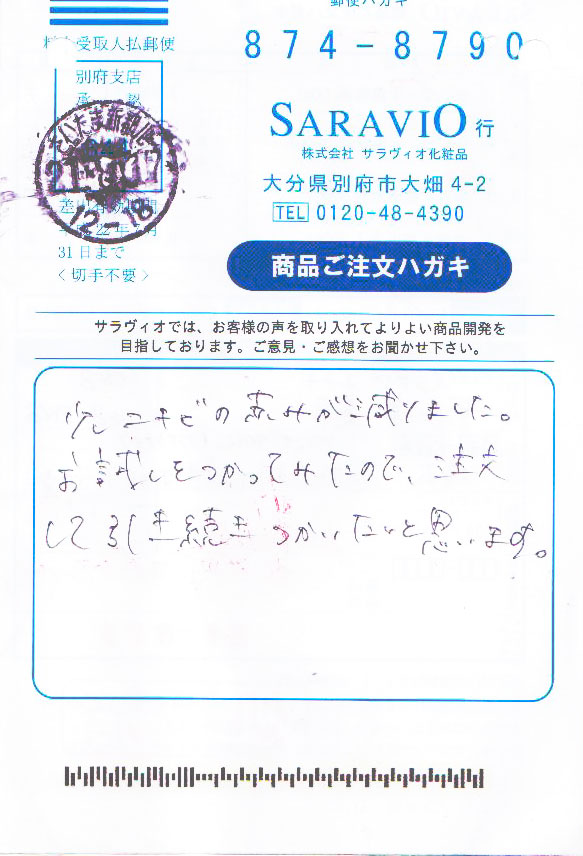 郵便ハガキ
料金受取人払郵便
874-8790
別府支店
承認
SARAVIO 行
株式会社 サラヴィオ化粧品
大分県別府市大畑 4-2
TEL 0120-48-4390
12-18
31日まで
<切手不要>
商品ご注文ハガキ
サラヴィオでは、お客様の声を取り入れてよりよい商品開発を
目指しております。ご意見・ご感想をお聞かせ下さい。
少しニキビの赤みが減りました。
お試しをつかってみたので、注文
して引き続きつかいたいと思います。